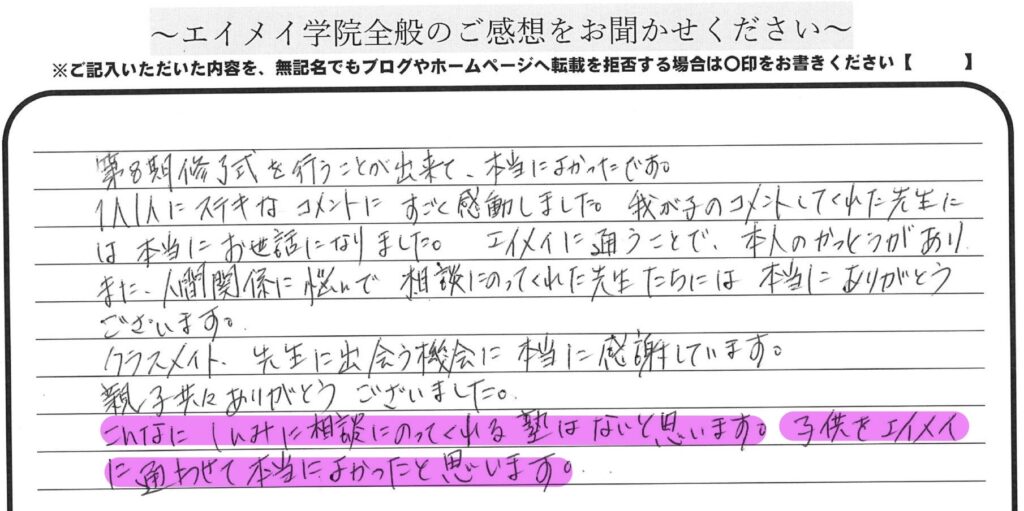 ～エイメイ学院全般のご感想をお聞かせください～
※ご記入いただいた内容を、無記名でもブログやホームページへ転載を拒否する場合は〇印をお書きください【　　　】
第8期修了式を行うことが出来て、本当によかったです。
1人1人にステキなコメントにすごく感動しました。我が子のコメントしてくれた先生に
は本当にお世話になりました。エイメイに通うことで、本人のかっとうがあり
また、人間関係に悩んで相談にのってくれた先生たちには本当にありがとう
ございます。
クラスメイト、先生に出会う機会に本当に感謝しています。
親子共にありがとうございました。
こんなにしんみに相談にのってくれる塾はないと思います。子供をエイメイ
に通わせて本当によかったと思います。